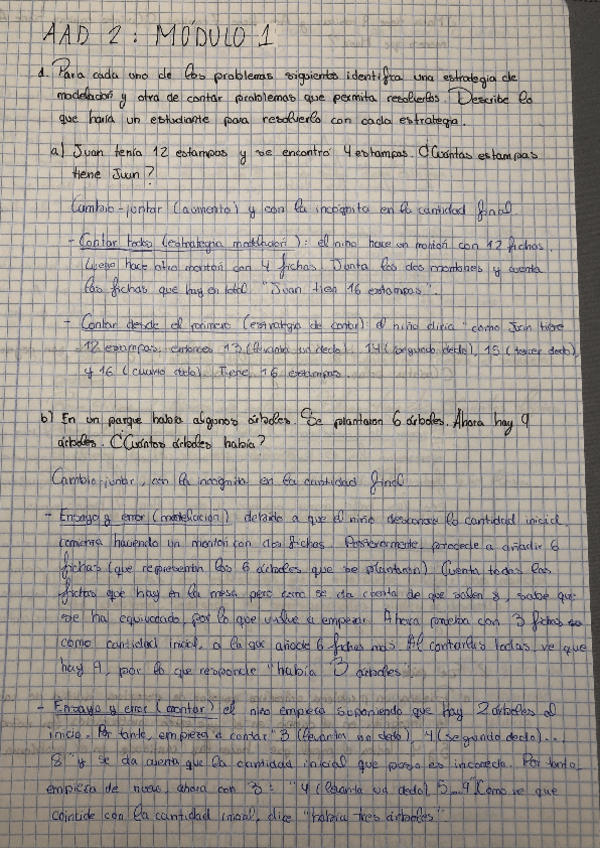 AAD 2: MÓDULO 1
1. Para cada uno de los problemas siguientes identifica una estrategia de
modelación y otra de contar problemas que permita resolverlos. Describe lo
que haría un estudiante para resolverlo con cada estrategia.
a) Juan tenía 12 estampas y se encontró 4 estampas. ¿Cuántas estampas
tiene Juan?
Cambio-juntar (aumento) y con la incógnita en la cantidad final
- Contar todos (estrategia modelación): el niño hace un montón con 12 fichas.
Luego hace otro montón con 4 fichas. Junta los dos montones y cuenta
las fichas que hay en total. "Juan tien 16 estampas".
- Contar desde el primero (estrategia de contar): el niño diría "como Juan tiene
12 estampas, entonces 13 (levanta un dedo), 14 (segundo dedo), 15 (tercer dedo)
y 16 (cuarto dedo). Tiene 16 estampas.
b) En un parque había algunos árboles. Se plantaron 6 árboles. Ahora hay 9
árboles. ¿Cuántos árboles había?
Cambio-juntar, con la incógnita en la cantidad final
- Ensayo y error (modelación) debido a que el niño desconoce la cantidad inicial,
comienza haciendo un montón con dos fichas. Posteriormente, procede a añadir 6
fichas (que representan los 6 árboles que se plantaron) Cuenta todas las
fichas que hay en la mesa, pero como se da cuenta de que salen 8, sabe que
se ha equivocado, por lo que vuelve a empezar. Ahora prueba con 3 fichas
como cantidad inicial, a la que añade 6 fichas más. Al contarlas todas, ve que
hay 9, por lo que responde "había 3 árboles"
- Ensayo y error (contar) el niño empieza suponiendo que hay 2 árboles al
inicio. Por tanto, empieza a contar "3 (levanta un dedo), 4 (segundo dedo)...
8" y se da cuenta que la cantidad inicial que puso es incorrecta. Por tanto,
empieza de nuevo, ahora con 3: "4 (levanta un dedo), 5...9" Como ve que
coincide con la cantidad inicial, dice "había tres árboles".